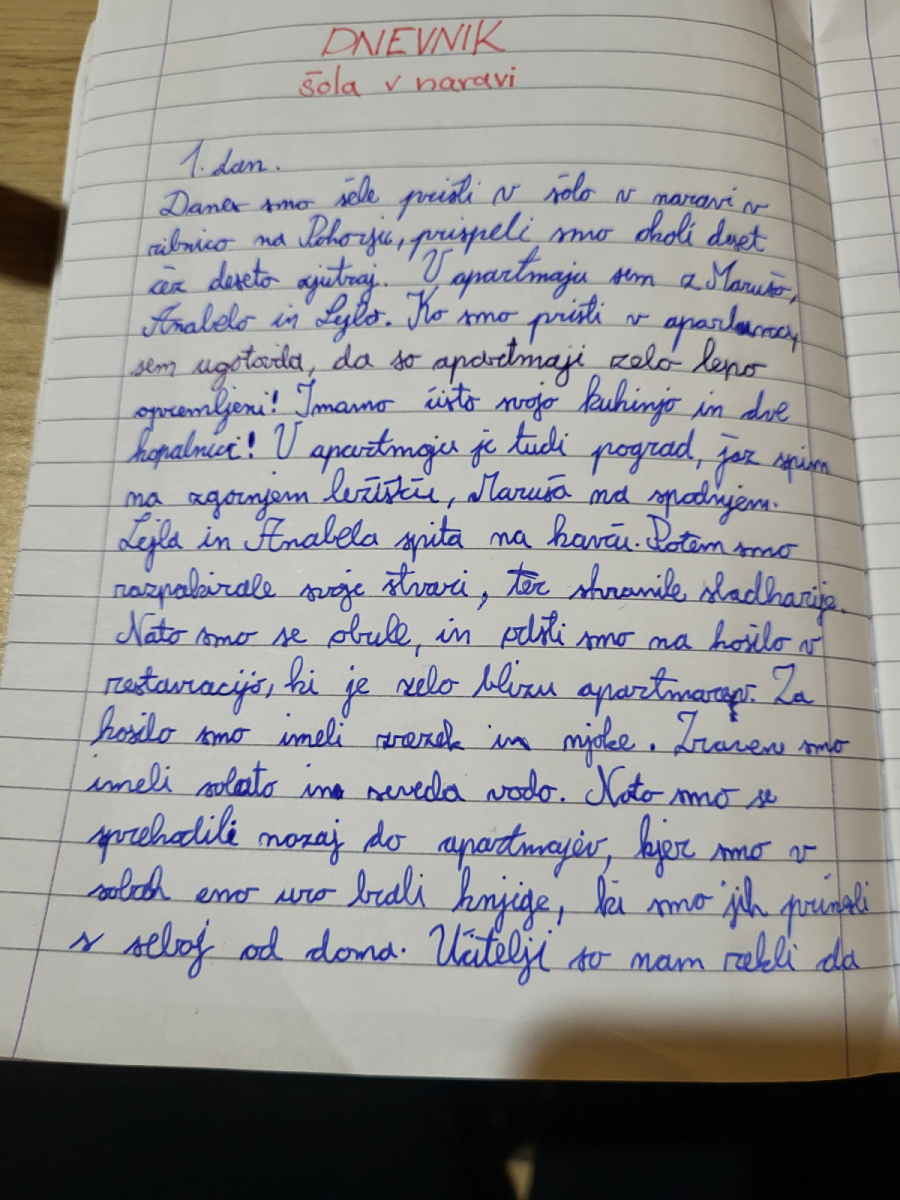 DNEVNIK
šola v naravi
1. dan.
Danes smo šele prišli v šolo v naravi v
ribnico na Pohorju, prispeli smo okoli deset
čez deseto zjutraj. V apartmaju sem z Marušo,
Anabelo in Lejlo. Ko smo prišli v
sem ugotovila, da so apartmaji zelo lepo
opremljeni! Imamo čisto svojo kuhinjo in dve
kopalnici! V apartmaju je tudi pograd, jaz spim
na zgornjem ležišču, Maruša na spodnjem.
Lejla in Anabela spita na kavču. Potem smo
razpakirale svoje stvari, ter shranile sladkarije.
Nato smo se obule, in odšli smo na kosilo v
restavracijo, ki je zelo blizu
Za
kosilo smo imeli zrezek in njoke. Zraven smo
imeli solato in seveda vodo. Nato smo se
sprehodili nazaj do apartmajev, kjer smo v
sobah eno uro brali knjige, ki smo jih prinesli
s seboj od doma. Učitelji so nam rekli da